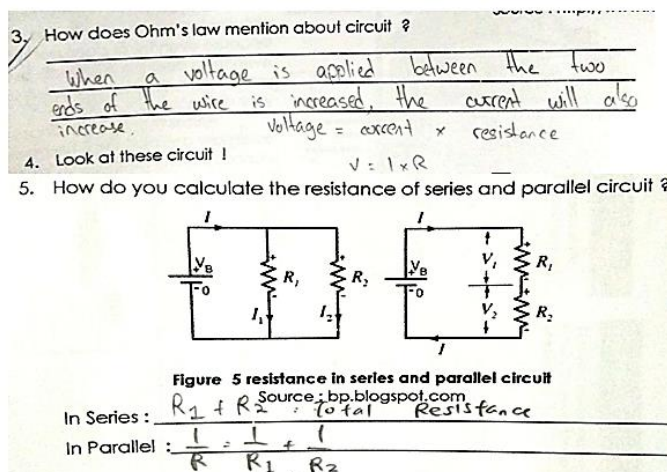 3. How does Ohm's law mention about circuit ?
When a voltage is applied between the two
ends of the wire is increased, the current will also
increase. Voltage = current x resistance
4. Look at these circuit !
V = I x R
5. How do you calculate the resistance of series and parallel circuit ?
I I
VB R1 R2 VB V1 R1
I1 I2 V2 R2
I
Figure 5 resistance in series and parallel circuit
Source : bp.blogspot.com
In Series : R1 + R2 = total Resistance
In Parallel : 1/R = 1/R1 + 1/R2